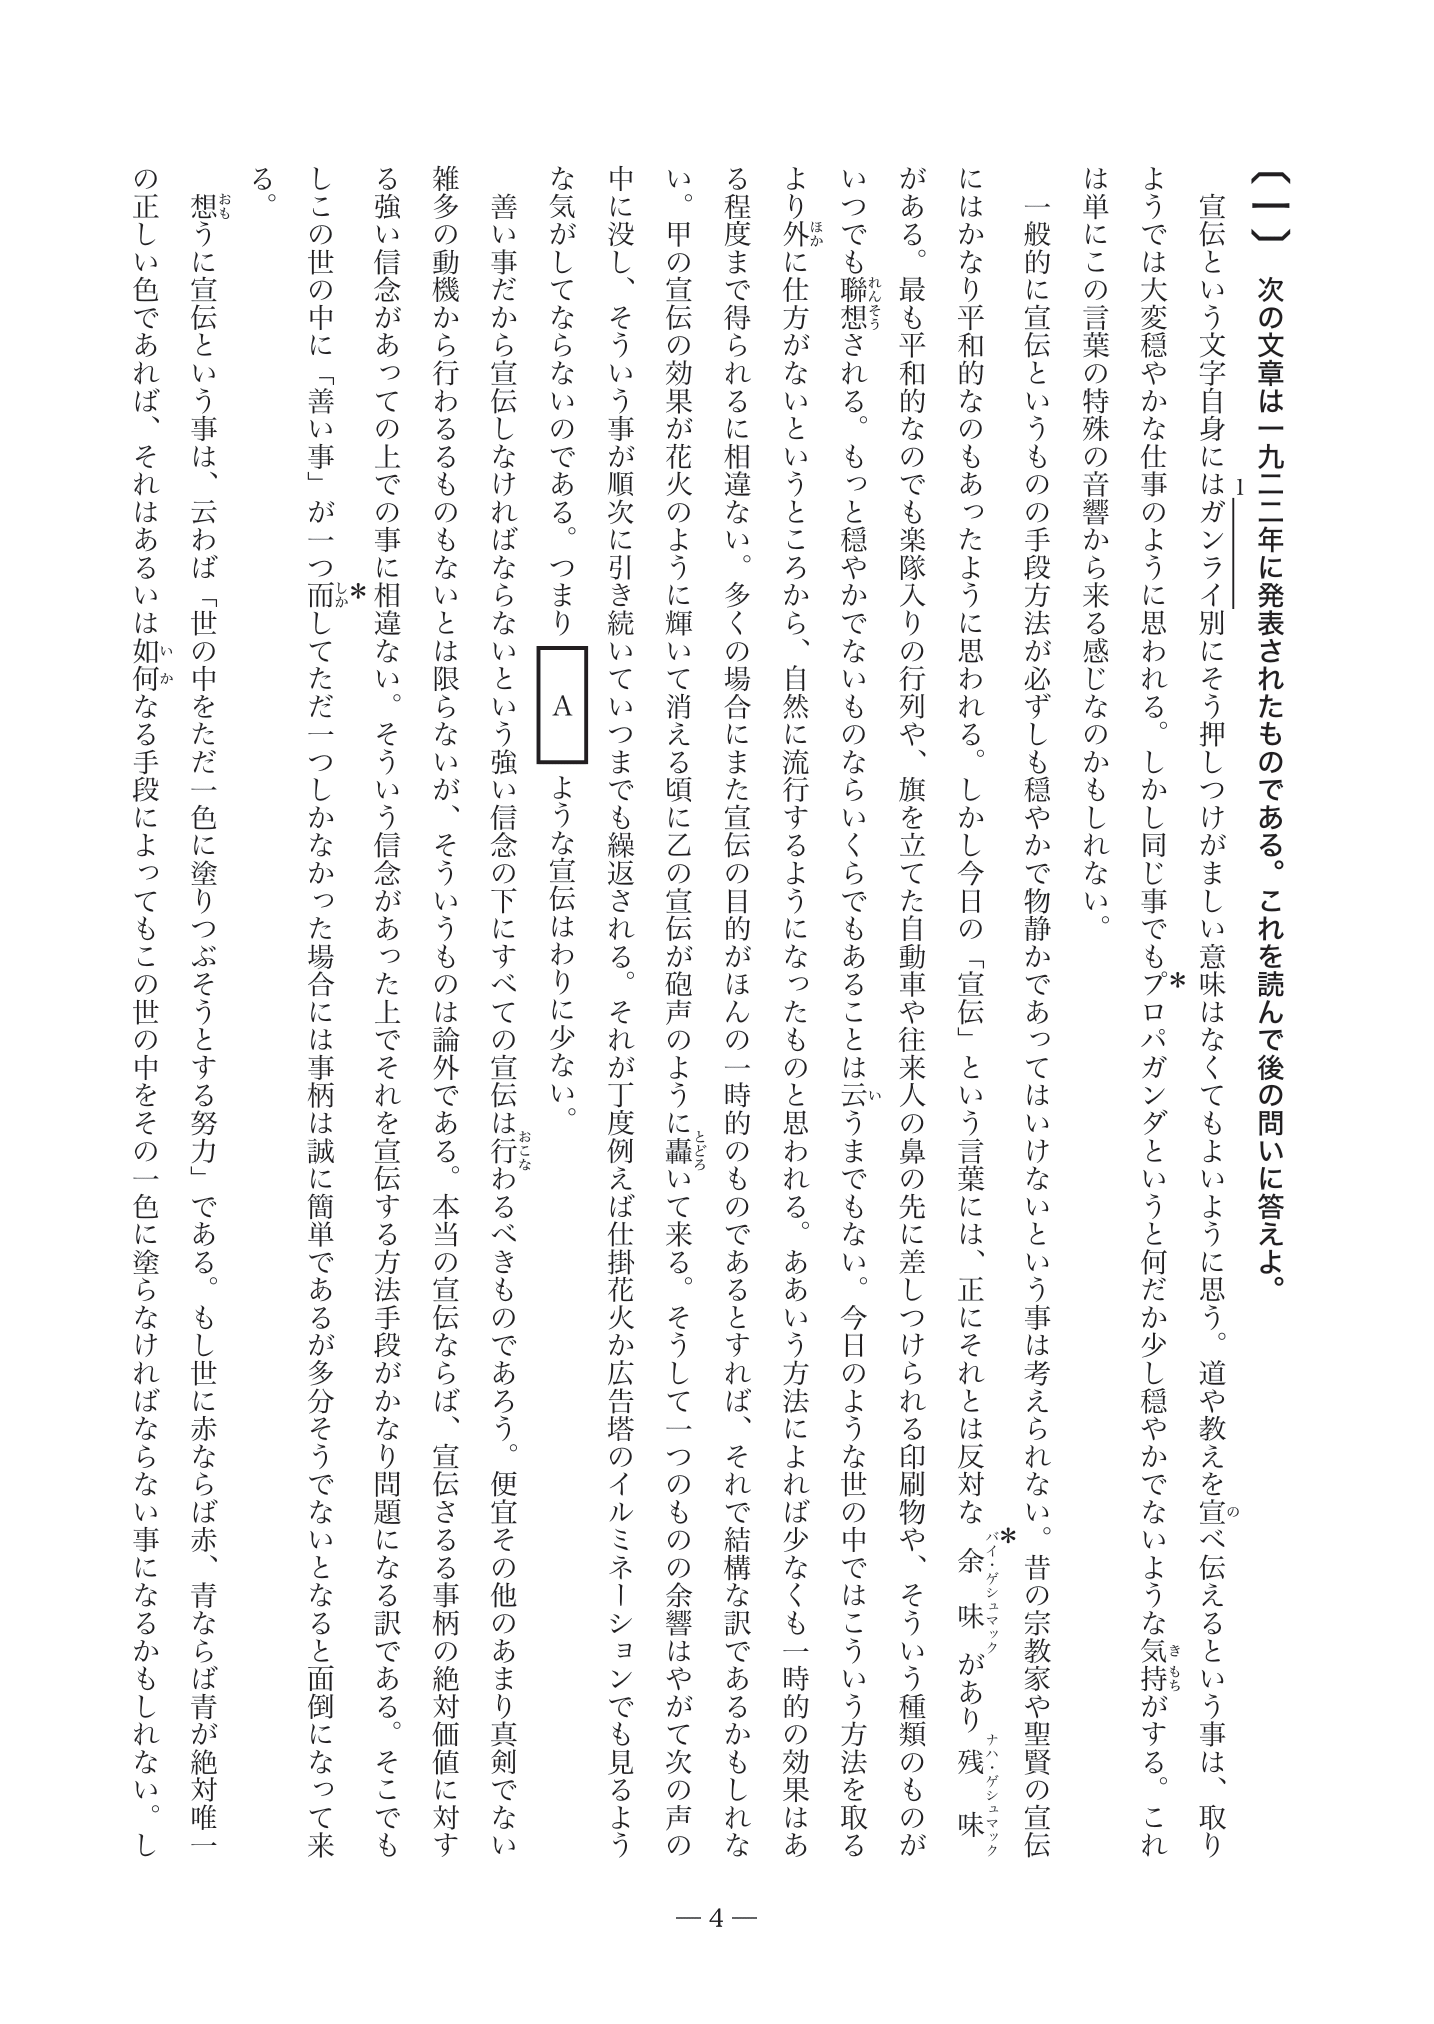 〔一〕 次の文章は一九二二年に発表されたものである。これを読んで後の問いに答えよ。
宣伝という文字自身には1ガンライ別にそう押しつけがましい意味はなくてもよいように思う。道や教えを宣べ伝えるという事は、取り
ようでは大変穏やかな仕事のように思われる。しかし同じ事でも*プロパガンダというと何だか少し穏やかでないような気持がする。これ
は単にこの言葉の特殊の音響から来る感じなのかもしれない。
一般的に宣伝というものの手段方法が必ずしも穏やかで物静かであってはいけないという事は考えられない。昔の宗教家や聖賢の宣伝
にはかなり平和的なのもあったように思われる。しかし今日の「宣伝」という言葉には、正にそれとは反対な*余味があり残味
がある。最も平和的なのでも楽隊入りの行列や、旗を立てた自動車や往来人の鼻の先に差しつけられる印刷物や、そういう種類のものが
いつでも聯想される。もっと穏やかでないものならいくらでもあることは云うまでもない。今日のような世の中ではこういう方法を取る
より外に仕方がないというところから、自然に流行するようになったものと思われる。ああいう方法によれば少なくも一時的の効果はあ
る程度まで得られるに相違ない。多くの場合にまた宣伝の目的がほんの一時的のものであるとすれば、それで結構な訳であるかもしれな
い。甲の宣伝の効果が花火のように輝いて消える頃に乙の宣伝が砲声のように轟いて来る。そうして一つのものの余響はやがて次の声の
中に没し、そういう事が順次に引き続いていつまでも繰返される。それが丁度例えば仕掛花火か広告塔のイルミネーションでも見るよう
な気がしてならないのである。つまり A ような宣伝はわりに少ない。
善い事だから宣伝しなければならないという強い信念の下にすべての宣伝は行わるべきものであろう。便宜その他のあまり真剣でない
雑多の動機から行わるるものもないとは限らないが、そういうものは論外である。本当の宣伝ならば、宣伝さるる事柄の絶対価値に対す
る強い信念があっての上での事に相違ない。そういう信念があった上でそれを宣伝する方法手段がかなり問題になる訳である。そこでも
しこの世の中に「善い事」が一つ*而してただ一つしかなかった場合には事柄は誠に簡単であるが多分そうでないとなると面倒になって来
る。
想うに宣伝という事は、云わば「世の中をただ一色に塗りつぶそうとする努力」である。もし世に赤ならば赤、青ならば青が絶対唯一
の正しい色であれば、それはあるいは如何なる手段によってもこの世の中をその一色に塗らなければならない事になるかもしれない。し
— 4 —